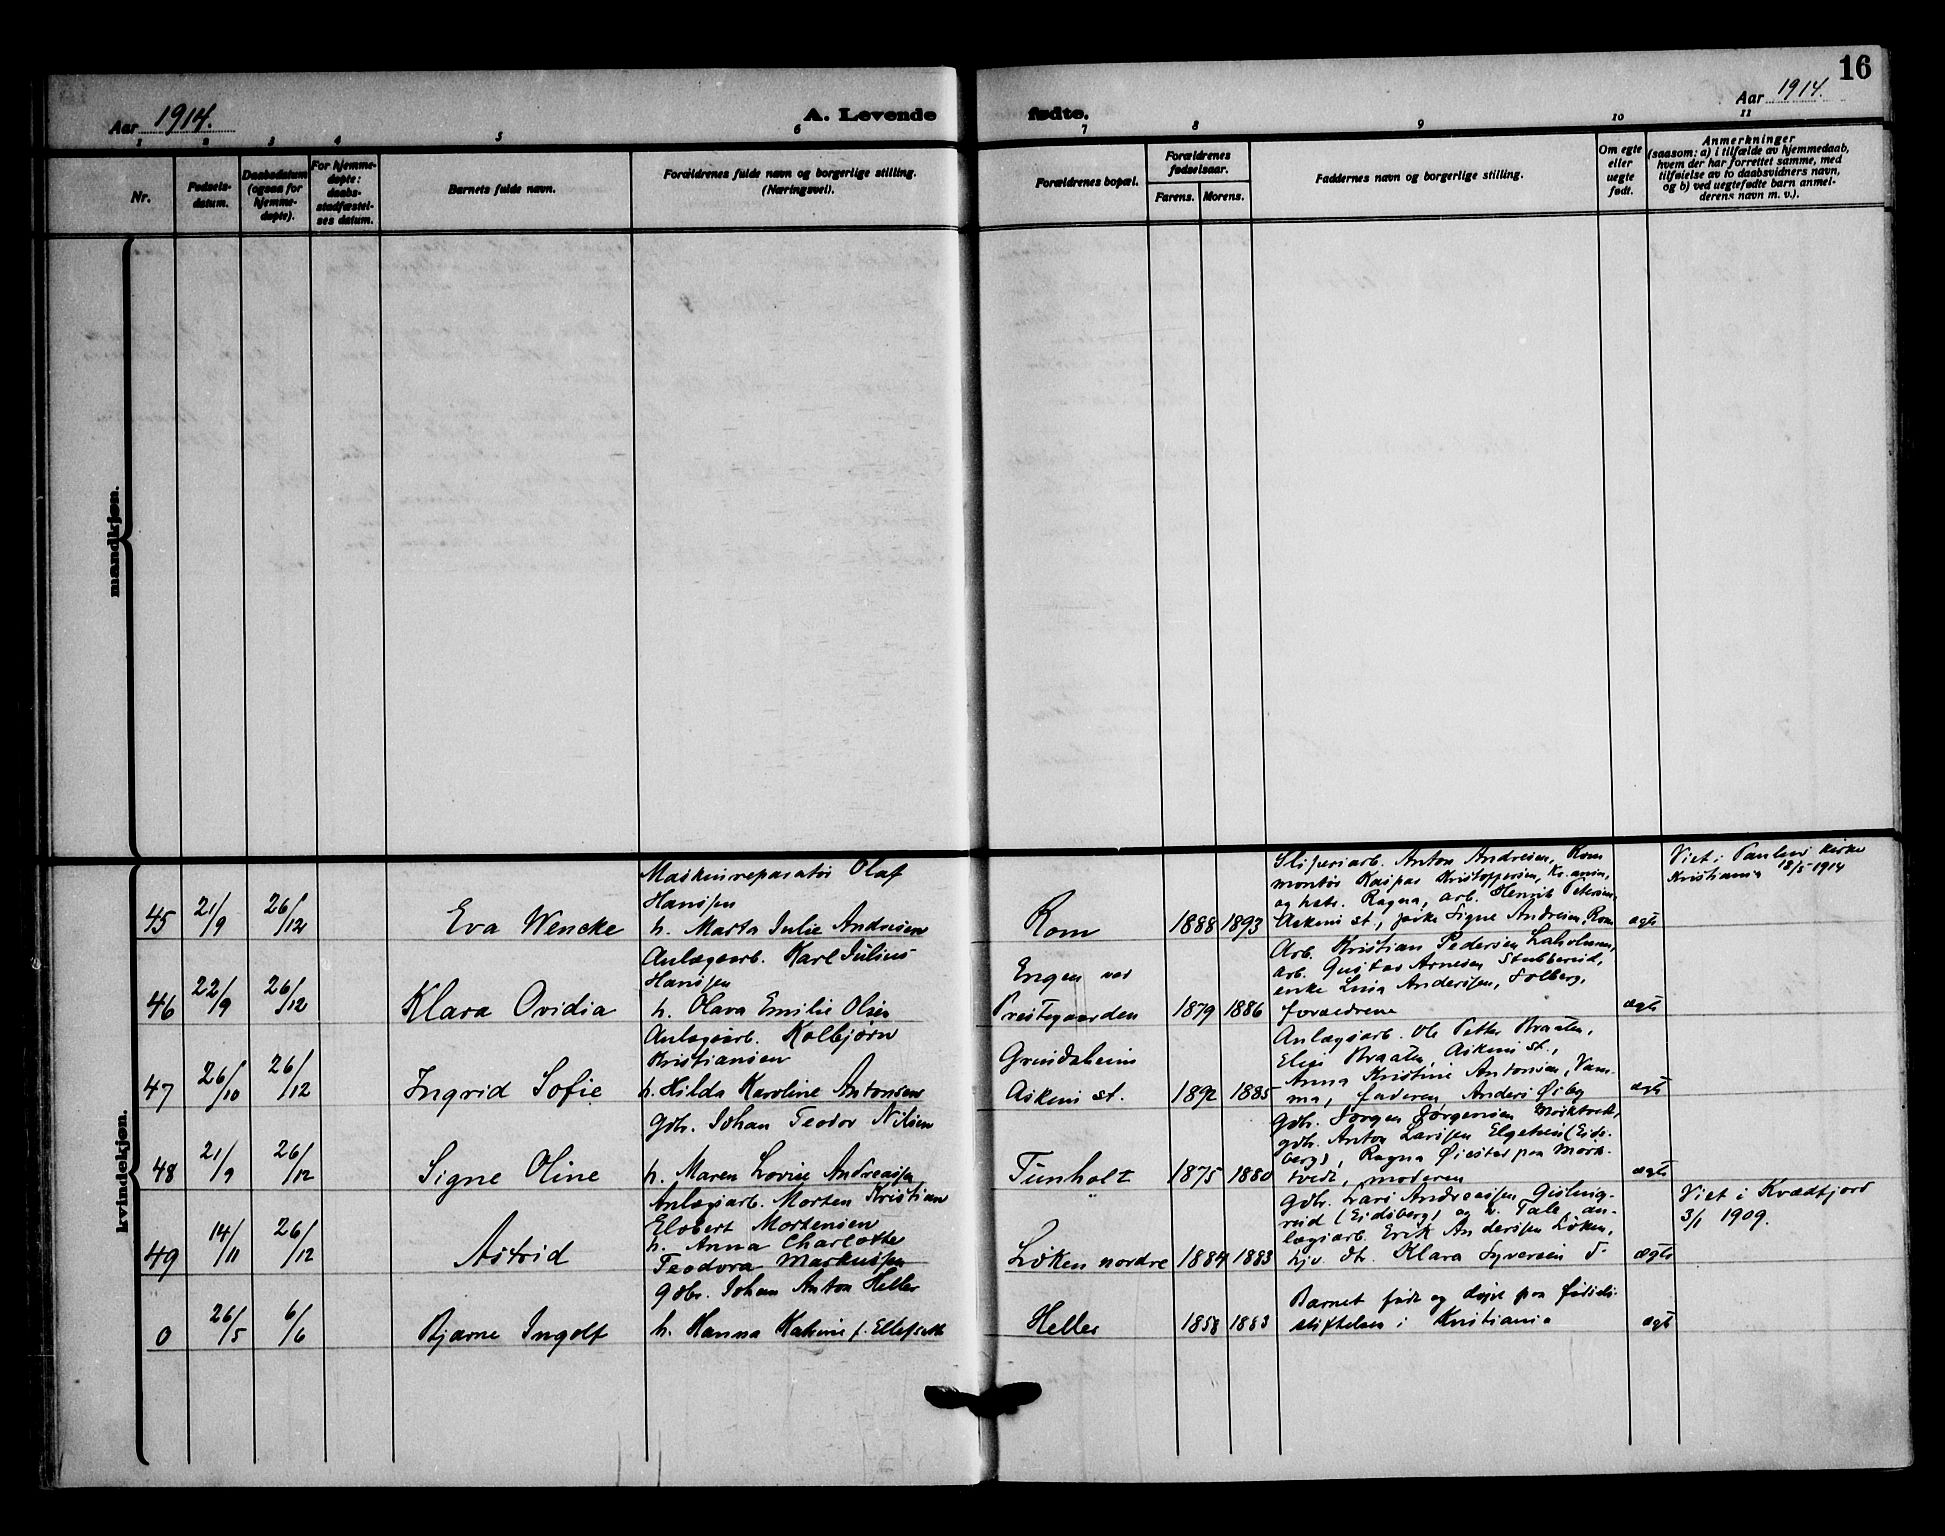 16
Aar 1914.
A. Levende fødte.
Aar 1914.
1 2 3 4 5 6 7 8 9 10 11
Nr.
Fødsels-
datum.
Daabsdatum
(ogsaa for
hjemme-
døpte).
For hjemme-
døpte:
daabs-
stadfæstel-
ses datum.
Barnets fulde navn.
Forældrenes fulde navn og borgerlige stilling.
(Næringsvei).
Forældrenes bopæl.
Forældrenes
fødselsaar.
Farens. Morens.
Faddernes navn og borgerlige stilling.
Om egte
eller
uegte
født.
Anmerkninger
(saasom: a) i tilfælde av hjemmedaab,
hvem der har forrettet samme, med
tilføielse av to daabsvidners navn,
og b) ved uegtefødte barn anmel-
derens navn m. v.).
mandkjøn.
kvindekjøn.
45 21/9 26/12 Eva Wencke
Maskinreparatør Olaf
Hansen
h. Marta Julie Andresen
Rom 1888 1893
Sliperiarb. Anton Andresen, Rom
montør Kaspar Kristoffersen, Kr.ania,
og hstr. Ragna, arb. Henrik Petersen
Askim st., pike Signe Andresen, Rom
egte
Viet i Paulus kirke
Kristiania 18/5 1914
46 22/9 26/12 Klara Ovidia
Anlægsarb. Karl Julius
Hansen
h. Olava Emilie Olsen
Engen ved
Prestegaarden 1879 1886
Arb. Kristian Pedersen
arb. Gustav Arnesen Stubberud,
enke Lina Andersen, Solberg,
forældrene
egte
47 26/10 26/12 Ingrid Sofie
Anlægsarb. Kolbjørn
Kristiansen
h. Hilda Karoline Antonsen
Grindaheim
Askim st. 1892 1885
Anlægsarb. Ole Petter Braaten,
Elise Braaten, Askim st.,
Anna Kristine Antonsen, Vam-
ma, faderen, Anders Øiby
egte
48 21/9 26/12 Signe Oline
gdbr. Johan Teodor Nilsen
h. Maren Lovise Andreassen
Funholt 1875 1880
gdbr. Jørgen Jørgensen Morktvedt,
gdbr. Anton Larssen Elgetun (Eids-
berg), Ragna Øiestad paa Mork-
tvedt, moderen
egte
49 14/11 26/12 Astrid
Anlægsarb. Morten Kristian
Elobert Mortensen
h. Anna Charlotte
Teodora Markussen
Løken nordre 1884 1883
gdbr. Lars Andreassen Gisling-
rud (Eidsberg) og h. Tale, an-
lægsarb. Erik Andersen Løken,
Klara Syversen
egte
Viet i Kvædfjord
3/1 1909.
0 26/5 6/6 Bjarne Ingolf
gdbr. Johan Anton Heller
h. Hanna Katrine f. Ellefsæth
Heller 1858 1883
Barnet født og døpt paa fødsels-
stiftelsen i Kristiania
egte